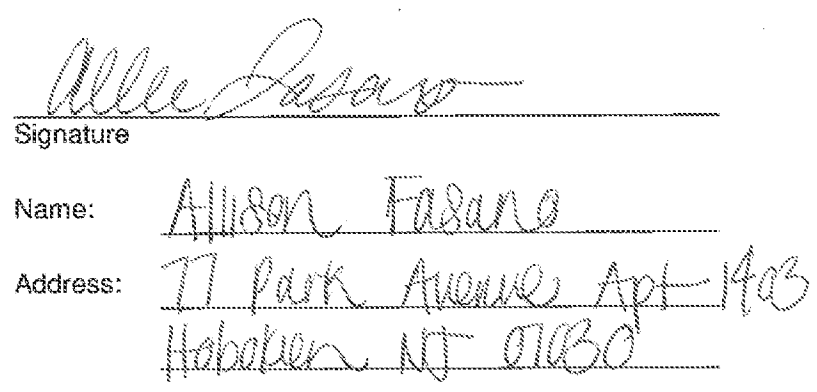 Allie Fasano
Signature
Name: Allison Fasano
Address: 77 Park Avenue Apt 1403
Hoboken NJ 07030